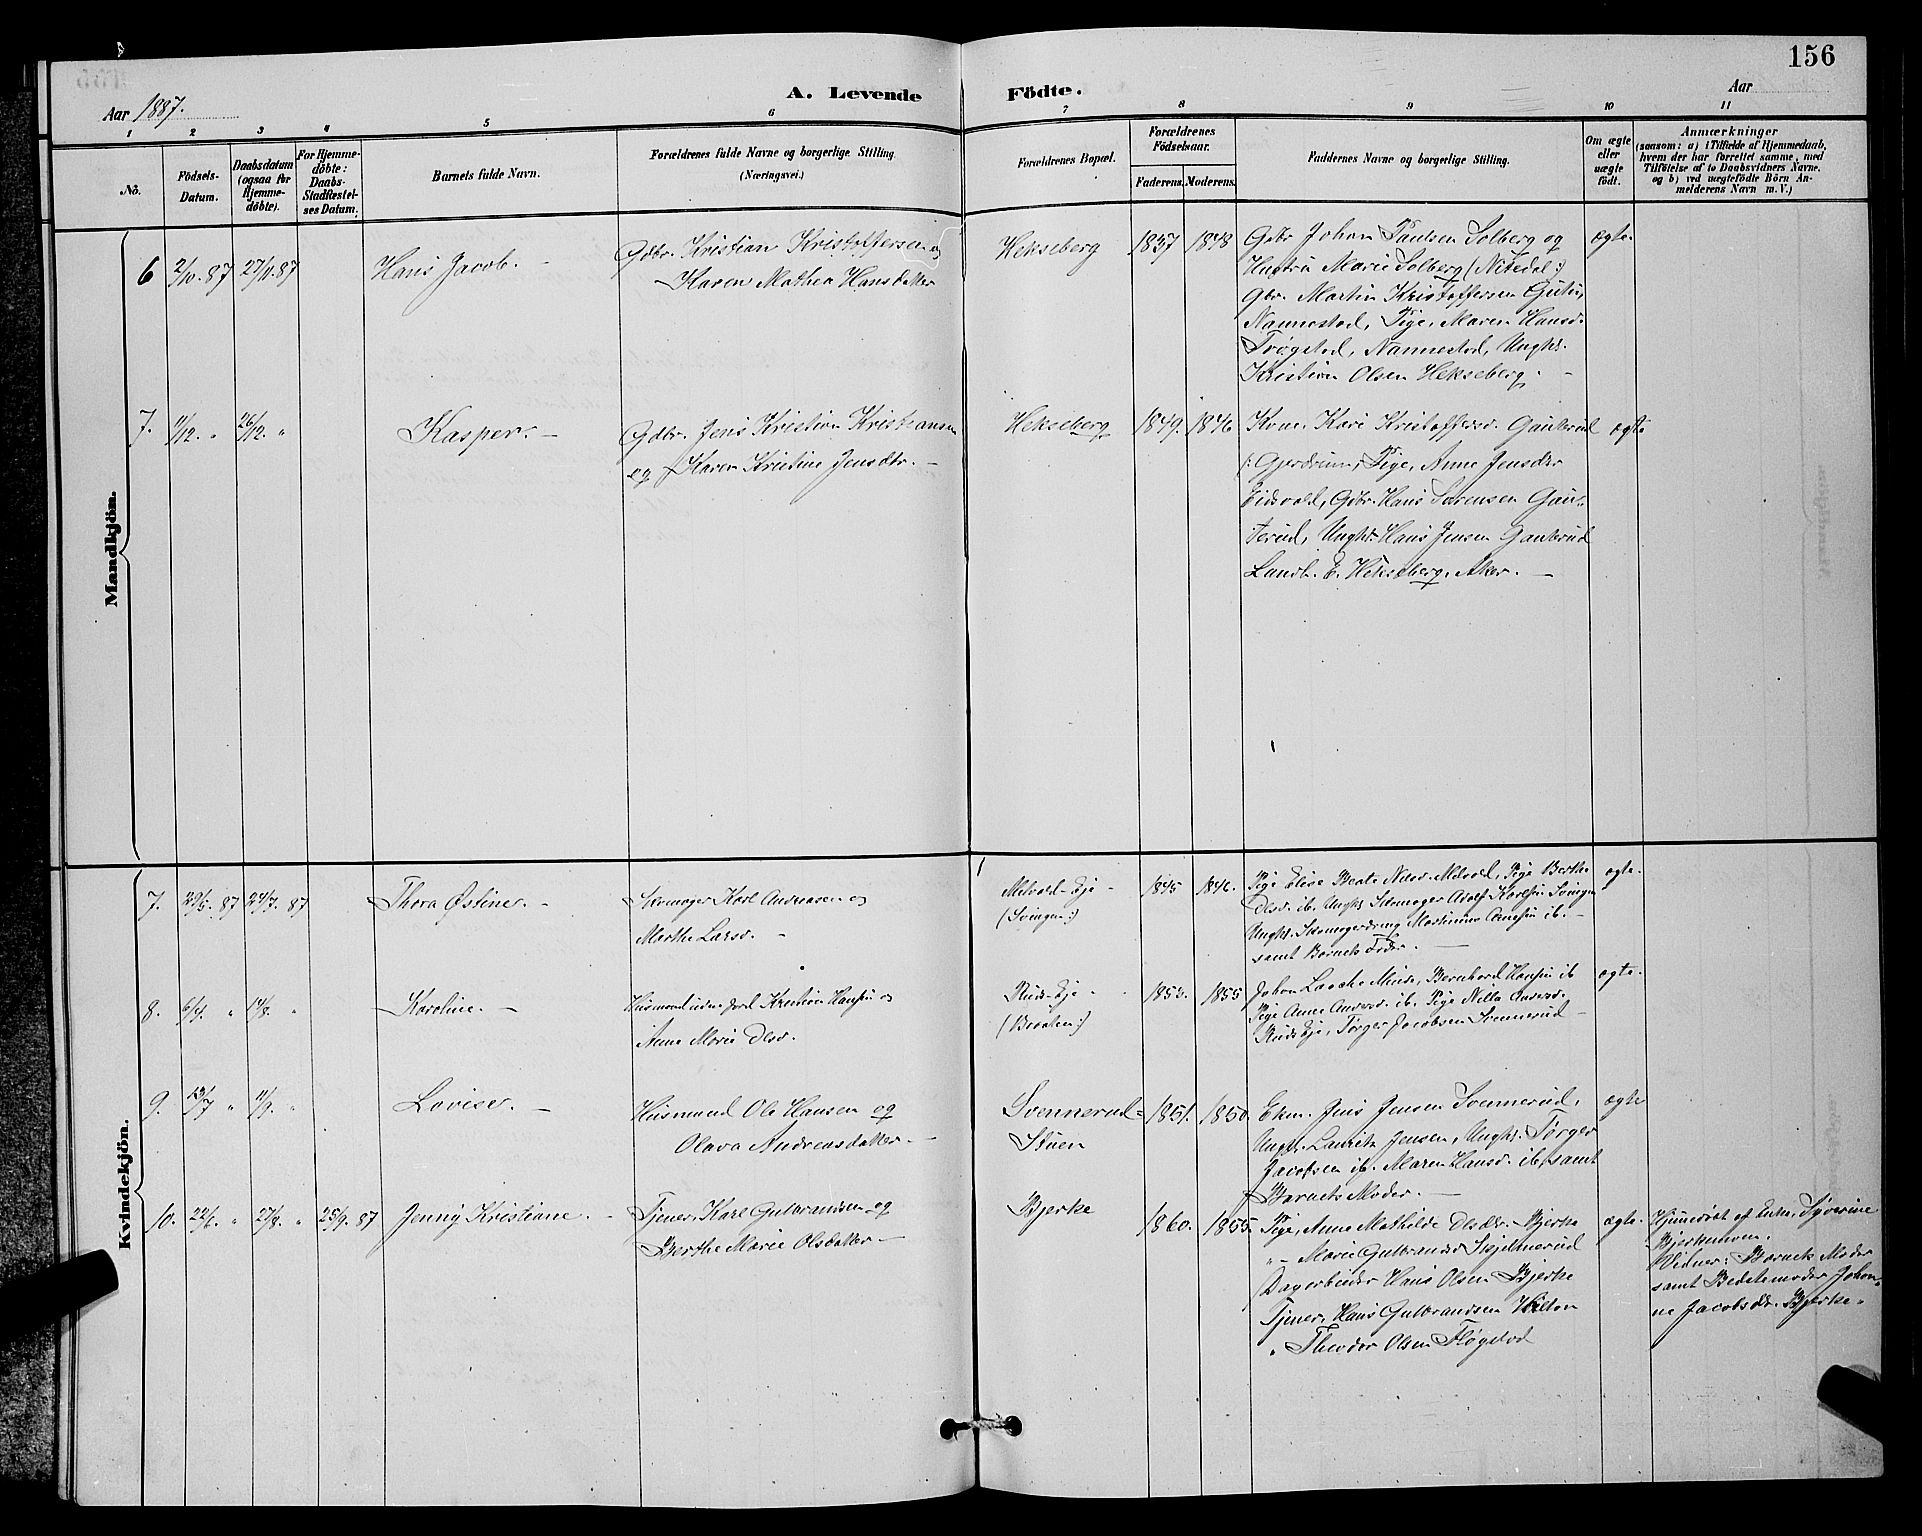 156
Aar 1887.
A. Levende Födte.
Aar
1 2 3 4 5 6 7 8 9 10 11
No.
Födsels-
Datum.
Daabsdatum
(ogsaa for
Hjemme-
döbte).
For Hjemme-
döbte:
Daabs-
Stadfæstel-
ses Datum.
Barnets fulde Navn.
Forældrenes fulde Navne og borgerlige Stilling
(Næringsvei.)
Forældrenes Bopæl.
Forældrenes
Födselsaar.
Faderens. Moderens.
Faddernes Navne og borgerlige Stilling.
Om ægte
eller
uægte
födt.
Anmærkninger
(saasom: a) i Tilfælde af Hjemmedaab,
hvem der har forrettet samme, med
Tilföielse af to Daabsvidners Navne,
og b) ved uægtefödte Börn An-
melderens Navn m. V.)
Mandkjön.
6 2/10. 87 27/11. 87
Hans Jacob. —
Gdbr. Kristian Kristoffersen og
Karen Mathea Hansdatter
Hekseberg
1837 1848
Gdbr Johan Paulsen Solberg og
Hustru Marie Solberg (Nitedal:)
Gbr. Martin Kristoffersen
Nannestad, Pige, Maren Hansd.
Trøgstad, Nannestad, Unghr.
Kristian Olsen Hekseberg. —
ægte.
7. 11/12. " 26/12. "
Kasper. —
Gdbr. Jens Kristian Kristiansen
og Karen Kristine Jensdtr. —
Hekseberg
1849. 1846
Kone. Kari Kristoffersd. Gauterud
(: Gjerdrum, Pige, Anne Jensdtr
Eidsvold, Gdbr. Hans Sørensen Gau-
terud, Unghr. Hans Jensen Gauterud
Landh. E. Hekseberg, Aker. —
ægte
Kvindekjön.
7. 29/5. 87 24/7. 87
Thora Østine. —
Skomager Karl Andreasen og
Marthe Larsd. —
Melvold-Eje —
(Svingen:)
1845 1846.
Pige Elise Beate Nilsd. Melvold, Pige Berthe
Olsd. ib. Unghr Skomager Adolf Karlsen Svingen
Unghr. Skomagerdreng Martinius ib. —
samt Barnets Fader. —
ægte.
8. " 14/8. "
Karoline. —
Husmand uden Jord Kristian Hansen og
Anne Marie Olsd.
Ruds-Eje —
(Braaten:)
1853. 1855
Johan Laache Bernhard Hansen ib
Pige Anne Andersd. ib. Pige Nilla Andersd.
Ruds Eje, Tørger Jacobsen Svennerud —
ægte.
9. 13/7 " 11/9. "
Lovise. —
Husmand Ole Hansen og
Olava Andreasdatter. —
Svennerud-
Stuen
1851. 1850.
Ekm. Jens Jensen Svennerud,
Unghr. Lauritz Jensen, Unghr. Tørger
Jacobsen ib. Maren Hansd. ib. samt
Barnets Moder. —
ægte
10. 22/6. " 27/8. " 25/9. 87
Jenny Kristiane. —
Tjener, Karl Gulbrandsen og
Berthe Marie Olsdatter. —
Bjerke
1860. 1855.
Pige, Anne Mathilde Olsdtr. Bjerke
" — Marie Gulbrandsd
Dagarbeider Hans Olsen Bjerke
Tjener, Hans Gulbrandsen Holton
" Theodor Olsen Fløgstad
ægte.
Hjemedøbt af Enke, Syverine
Bjerkemoen.
Vidner: Barnets Moder
samt Bedstemoder Johan-
ne Jacobsdtr. Bjerke.